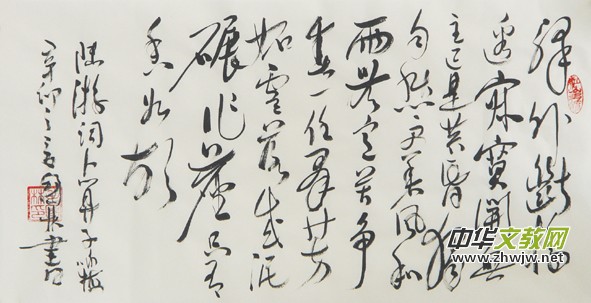 驛外斷橋
邊寂寞開無
主已是黄昏獨
自愁更著風和
雨無意苦争
春一任群芳
妒零落成泥
碾作塵只有
香如故
陸游词卜算子咏梅
辛卯之 書
中华文教网
www.zhwjw.net